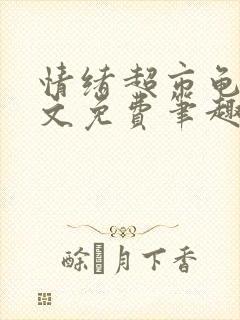 情绪超市龟
文免费笔趣
酴月下香